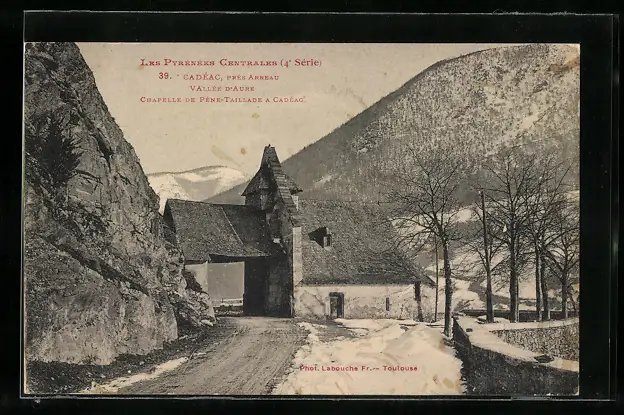 LES PYRÉNÉES CENTRALES (4e Série)
39. - CADÉAC, PRÈS ARREAU
VALLÉE D'AURE
CHAPELLE DE PÈNE-TAILLADE A CADÉAC
PHOT. LABOUCHE FR. — TOULOUSE